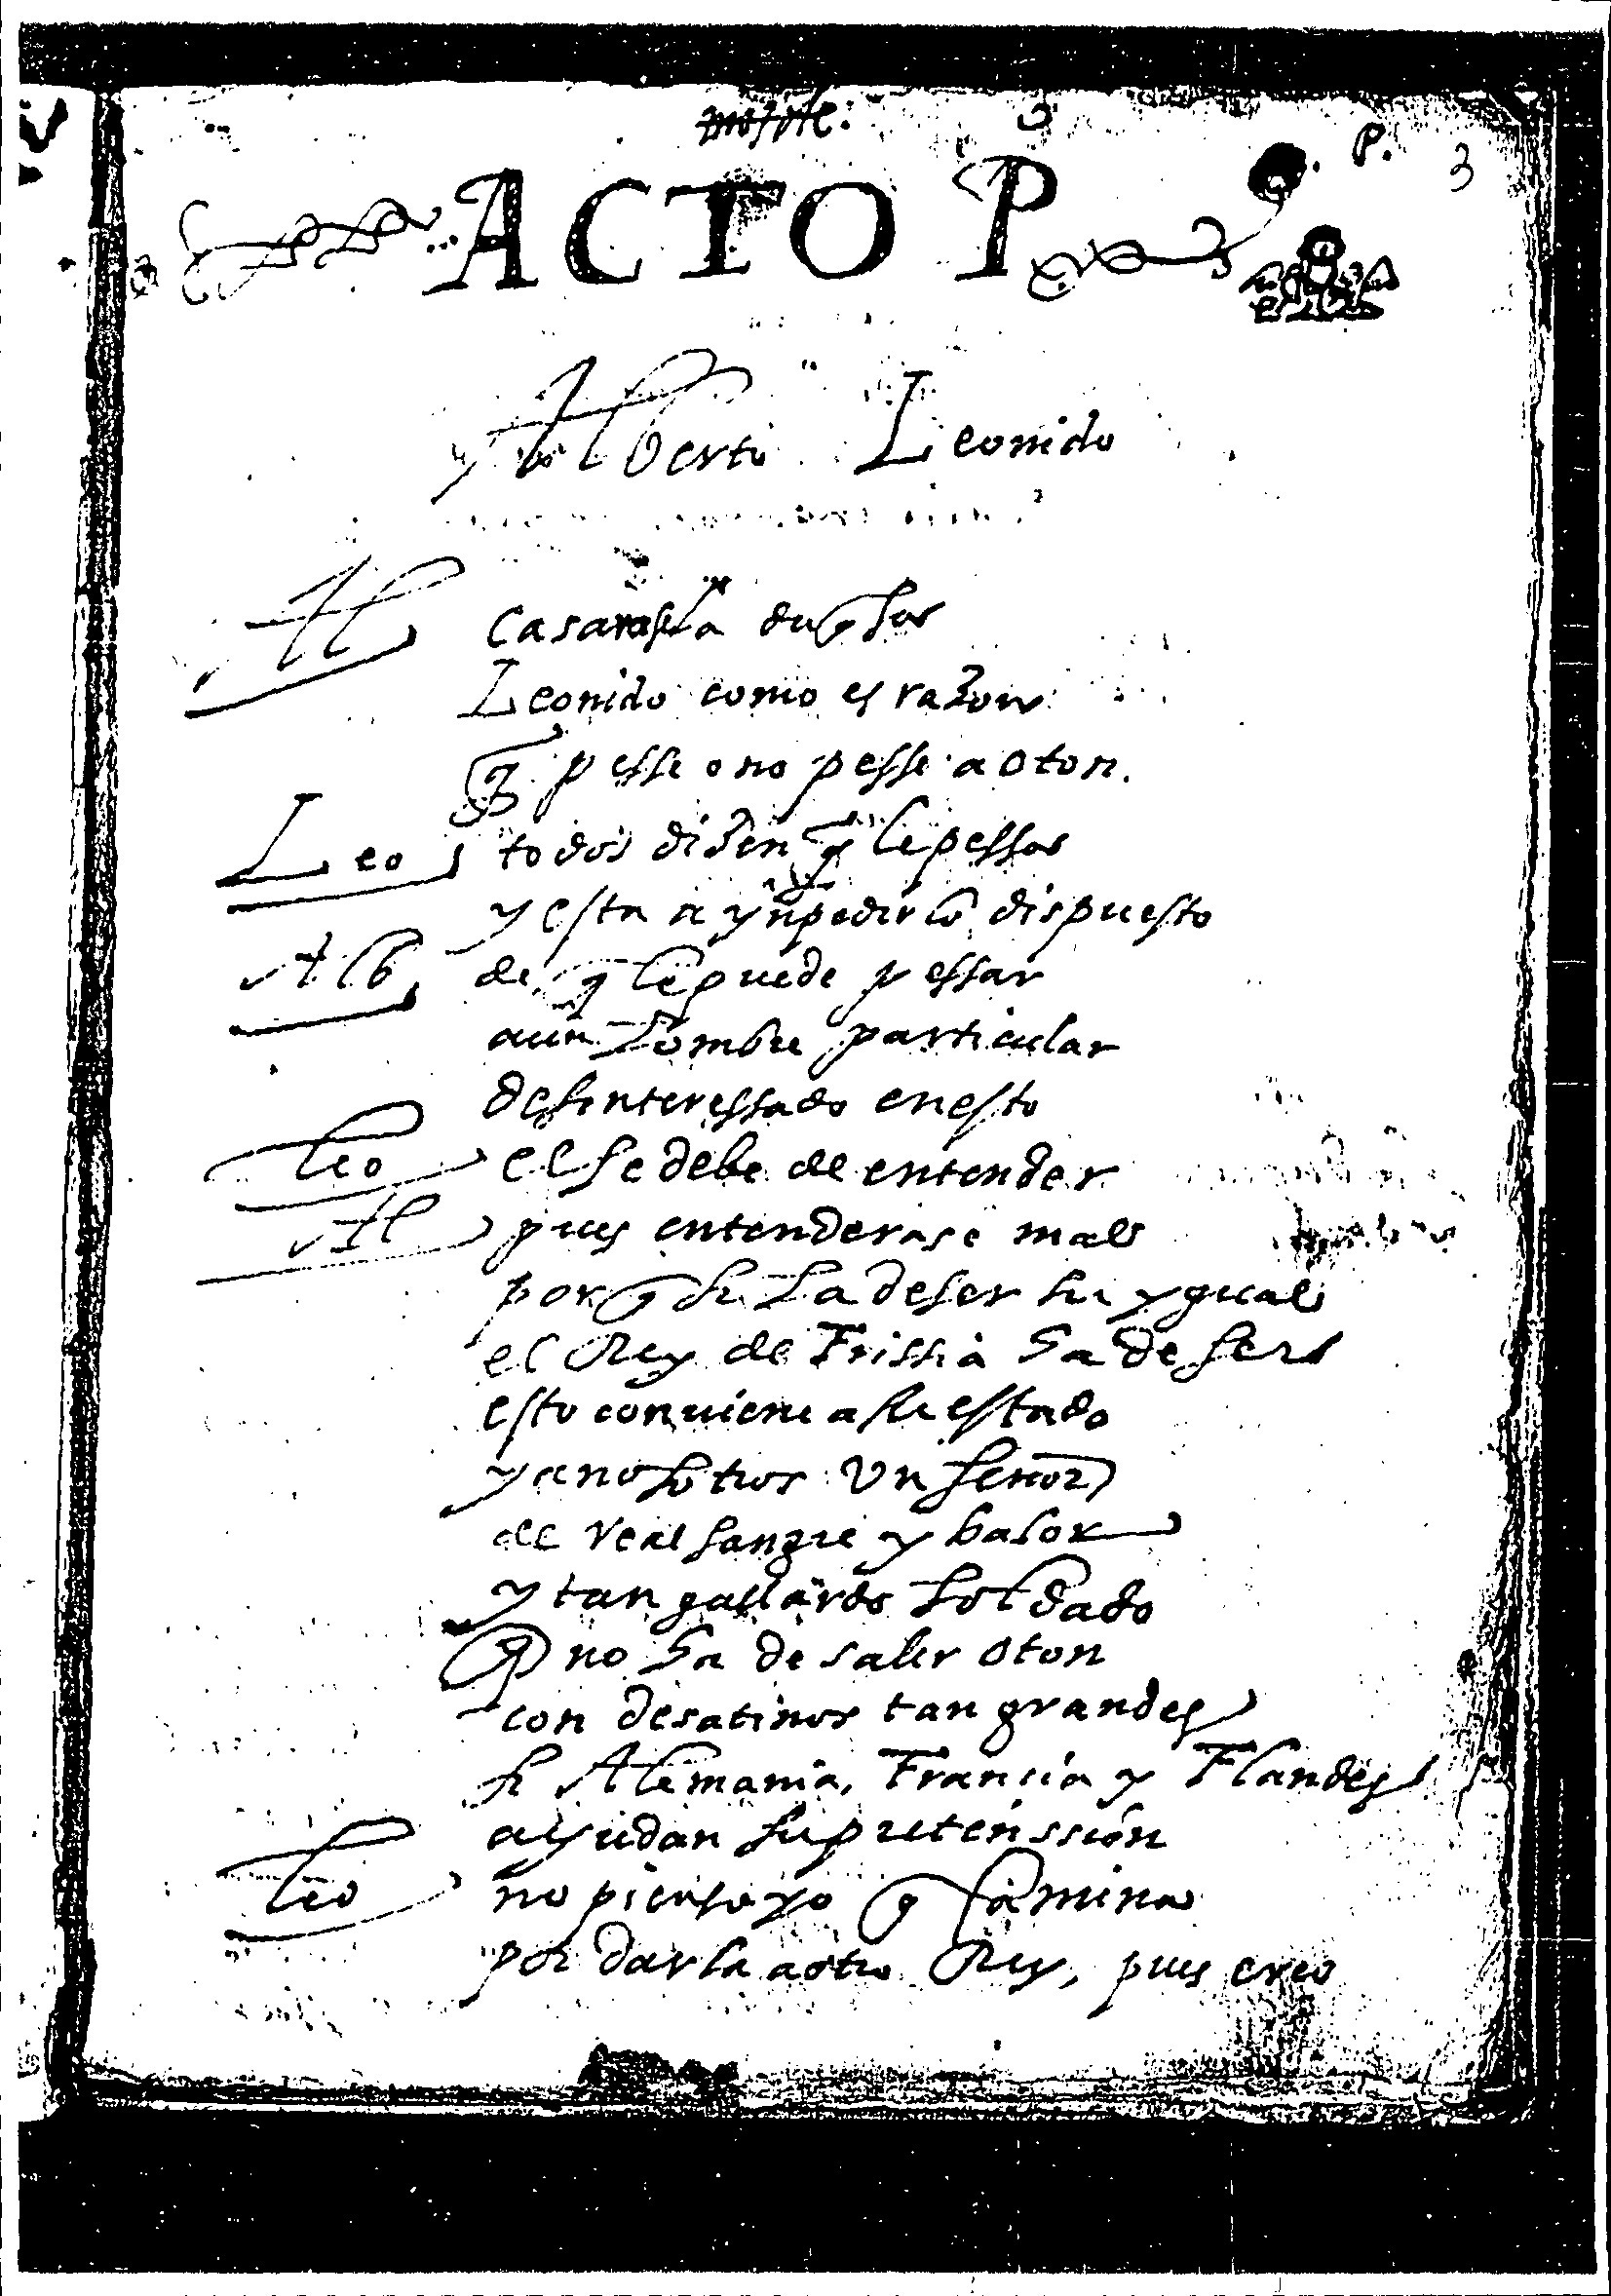 3
P. 3
ACTO P
Alberto Leonido
Al casarasela duqsa
Leonido como es razon
q pesse o no pesse a oton.
Leo todos dizen q le pessa
y esta a ynpedirlo dispuesto
Alb de q le puede pessar
a un hombre particular
desinteressado en esto
Leo el se debe de entender
Al pues entenderase mal
porq si ha de ser su ygual
el Rey de Frissia ha de ser
esto conviene a su estado
y a nosotros Un señor
de real sangre y balor
y tan gallardo soldado
q no ha de saber oton
con desatinos tan grandes
si Alemania, Francia y Flandes
ayudan su pretenssion
Leo no pienso yo q camina
por darla a otro Rey, pues creo